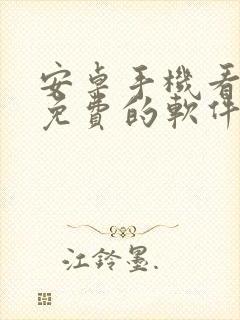 安卓手機看
免費的軟件
江鈴墨.